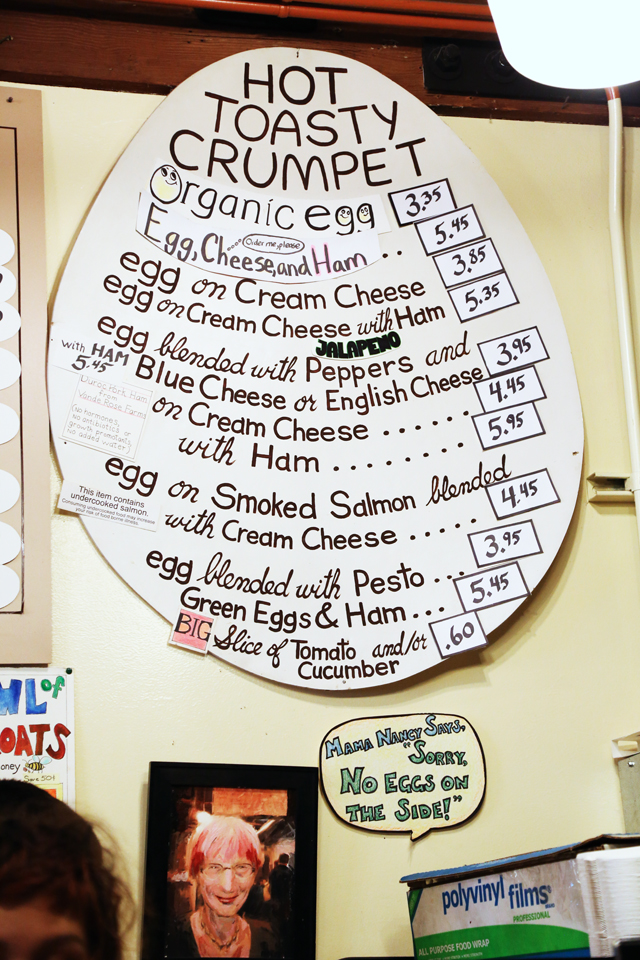 HOT
TOASTY
CRUMPET
Organic egg 3.35
Egg, Cheese, and Ham .. 5.45
.... Order me, please
egg on Cream Cheese 3.85
egg on Cream Cheese with Ham 5.35
JALAPEÑO
egg blended with Peppers and 3.95
Blue Cheese or English Cheese 4.45
with HAM
5.45
on Cream Cheese ......
with Ham ........ 5.95
Duroc Pork Ham
from
Vande Rose Farm
(No hormones,
No antibiotics or
growth promotants,
no added water)
egg on Smoked Salmon blended
with Cream Cheese ..... 4.45
This item contains
undercooked salmon.
Consuming undercooked food may increase
your risk of food borne illness.
egg blended with Pesto ... 3.95
Green Eggs & Ham ... 5.45
BIG Slice of Tomato and/or .60
Cucumber
WL of
OATS
oney
MAMA NANCY SAYS,
"SORRY,
NO EGGS ON
THE SIDE!"
polyvinyl films
PROFESSIONAL
ALL PURPOSE FOOD WRAP